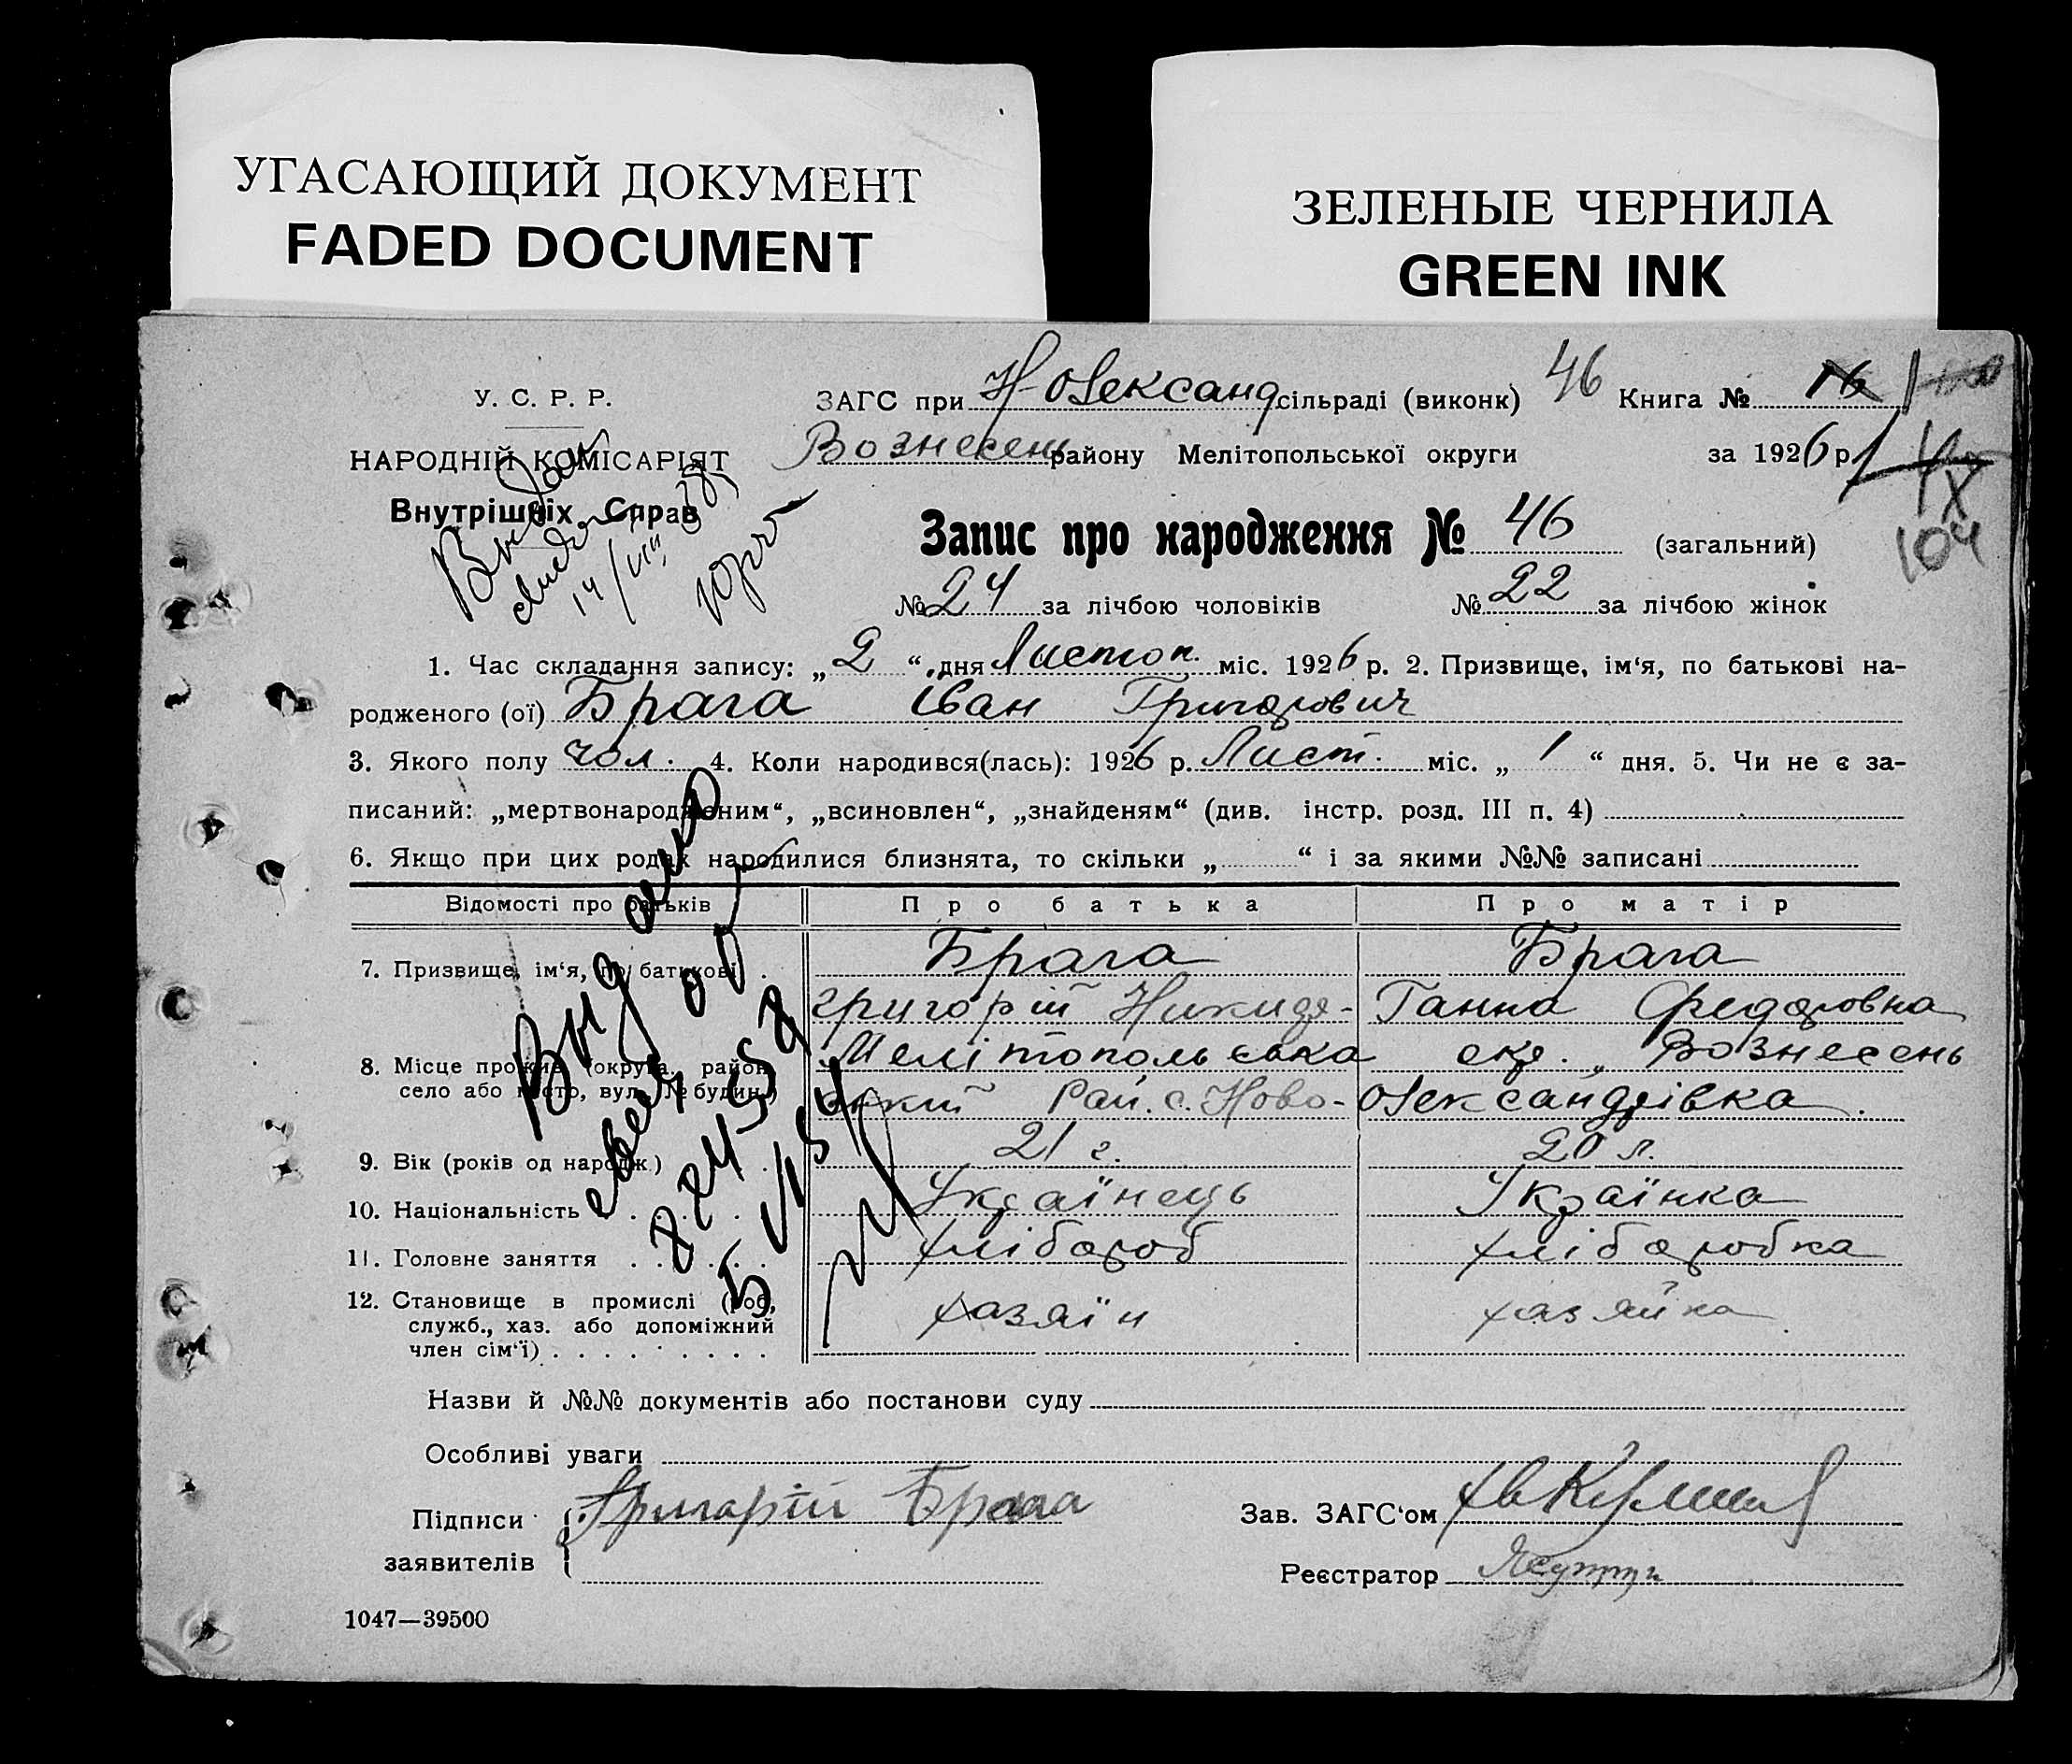 УГАСАЮЩИЙ ДОКУМЕНТ
FADED DOCUMENT
ЗЕЛЕНЫЕ ЧЕРНИЛА
GREEN INK
У. С. Р. Р.
НАРОДНІЙ КОМІСАРІЯТ
Внутрішніх Справ
ЗАГС при Н-Олександ сільраді (виконк) 46 Книга № 16
Вознесен району Мелітопольської округи за 1926 р
104
Запис про народження № 46 (загальний)
№ 24 за лічбою чоловіків № 22 за лічбою жінок
1. Час складання запису: „2“ дня Листоп. міс. 1926 р. 2. Призвище, ім‘я, по батькові на-
родженого (ої) Брага Іван Григорович
3. Якого полу чол. 4. Коли народився(лась): 1926 р. Лист. міс. „1“ дня. 5. Чи не є за-
писаний: „мертвонародженим“, „всиновлен“, „знайденям“ (див. інстр. розд. III п. 4)
6. Якщо при цих родах народилися близнята, то скільки „ “ і за якими №№ записані
Відомості про батьків Про батька Про матір
7. Призвище, ім‘я, по батькові Брага Брага
Григорій Никидо- Ганна Федоровна
8. Місце прожив. (округа, район, Мелітопольська окр. Вознесень
село або місто, вул. № будин.) ський Рай. с. Ново-Олександрівка.
9. Вік (років од народж.) 21 г. 20 л.
10. Національність Українець Українка
11. Головне заняття хлібороб хлібаробка
12. Становище в промислі (роб, хазяїн хазяйка
служб., хаз. або допоміжний
член сім‘ї)
Выдано
свид
824558
Назви й №№ документів або постанови суду
Особливі уваги
Підписи Григорій Брага Зав. ЗАГС‘ом
заявителів Реєстратор
1047—39500